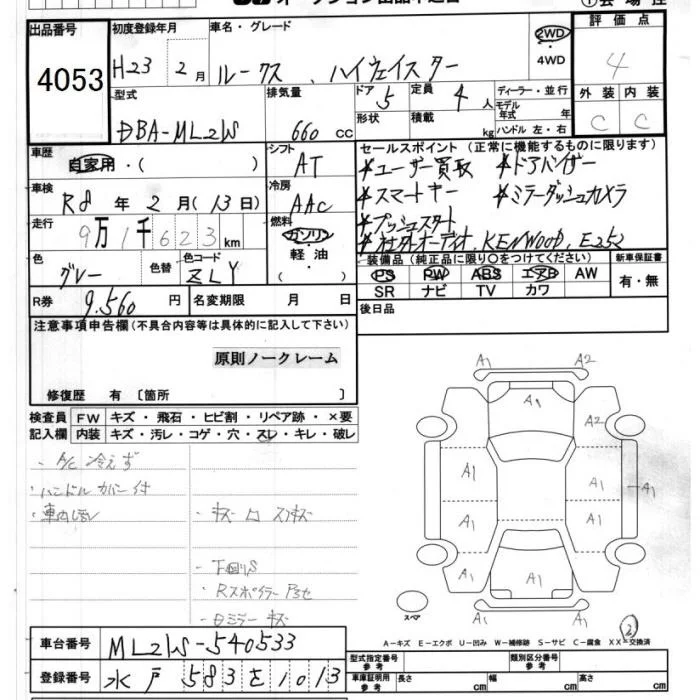 出品番号 4053
初度登録年月 H23 2月
車名・グレード
ルークス、ハイウェイスター
2WD ・ 4WD
評価点 4
型式 DBA-ML21S
排気量 660 cc
ドア 5
形状
定員 4人
積載 kg
ディーラー・並行
モデル年式 年
ハンドル 左・右
外装 C
内装 C
車歴 自家用・( )
シフト AT
セールスポイント (正常に機能するものに限ります)
*ユーザー買取 *ドアバイザー
*スマートキー *ミラーダッシュカメラ
*プッシュスタート
*社外オーディオ、KENWOOD、E252
車検 R8年 2月 (13日)
冷房 AAC
走行 9万1千623km
燃料 ガソリン・軽油・( )
装備品 (純正品に限り〇をつけてください)
PS PW ABS エアB AW
SR ナビ TV カワ
新車保証書 有・無
色 グレー
色替
色コード ZLY
R券 9.560 円
名変期限 月 日
後日品
注意事項申告欄(不具合内容等は具体的に記入して下さい)
原則ノークレーム
修復歴 有 〔箇所 〕
検査員記入欄
FW キズ・飛石・ヒビ割・リペア跡・×要
内装 キズ・汚レ・コゲ・穴・スレ・キレ・破レ
・A/C 冷えず
・ハンドルカバー付
・車内
・下回りS
・Rスポイラー
A1 A2
A1
A2
A1 A1 A1
A1 A1
A1 A1 A1
A1 A1
スペア
②
A-キズ E-エクボ U-凹み W-補修跡 S-サビ C-腐食 XX-交換済
車台番号 ML21S-540533
登録番号 水戸 583 を 1013
型式指定番号 参考
類別区分番号 参考
車庫証明用 参考 長さ cm 幅 cm 高さ cm